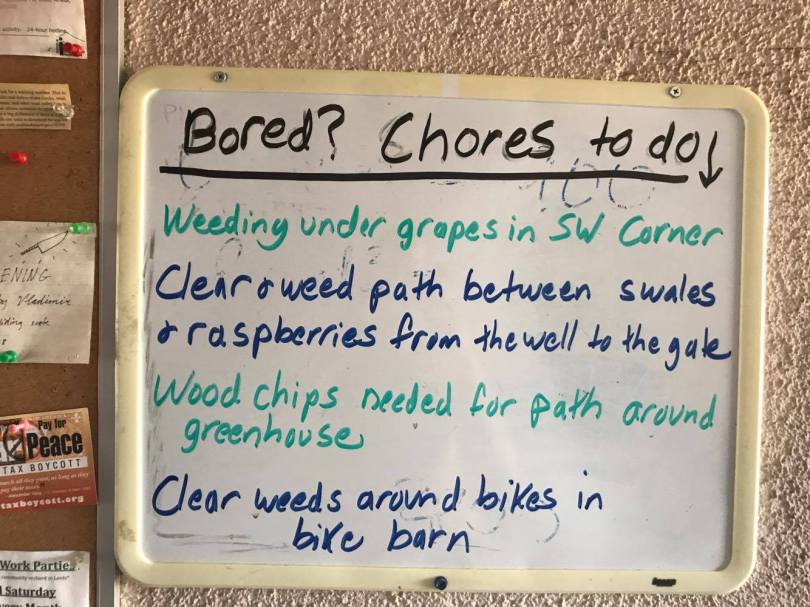 Bored? Chores to do ↓
Weeding under grapes in SW Corner
Clear & weed path between swales
& raspberries from the well to the gate
Wood chips needed for path around
greenhouse
Clear weeds around bikes in
bike barn
activity. 24-hour hotline
ENING
Vladimir
Pay for
Peace
TAX BOYCOTT
taxboycott.org
Work Partie
Saturday